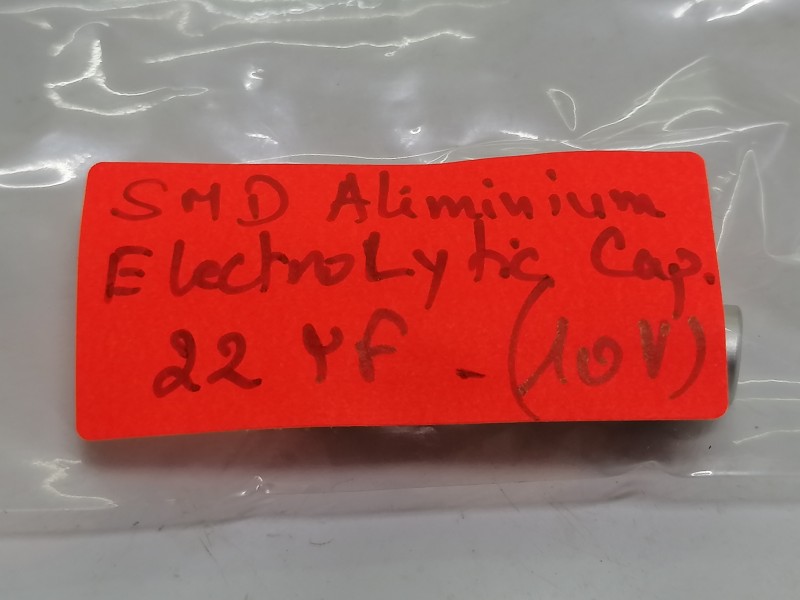 SMD Aliminium
Electrolytic Cap.
22 µF - (10V)